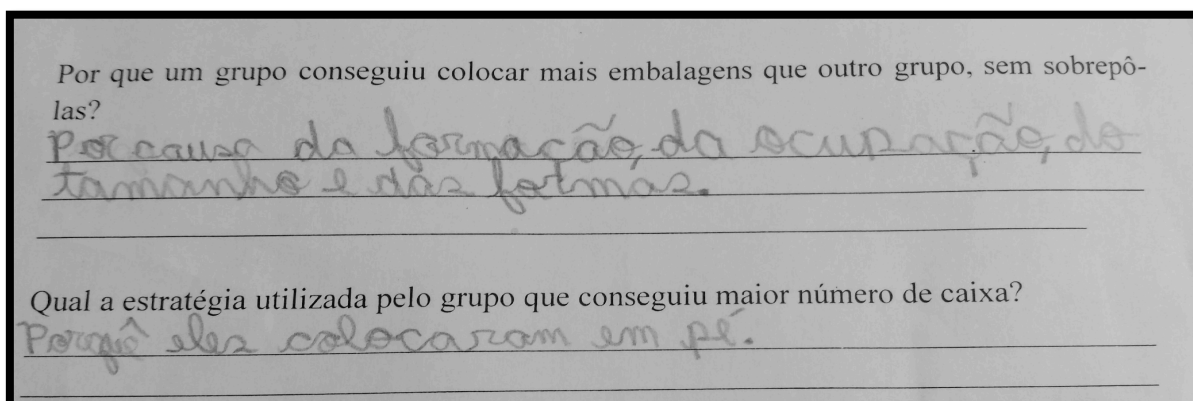 Por que um grupo conseguiu colocar mais embalagens que outro grupo, sem sobrepô-
las?
Por causa da formação, da ocupação, do
tamanho e das formas.
Qual a estratégia utilizada pelo grupo que conseguiu maior número de caixa?
Porquê eles colocaram em pé.